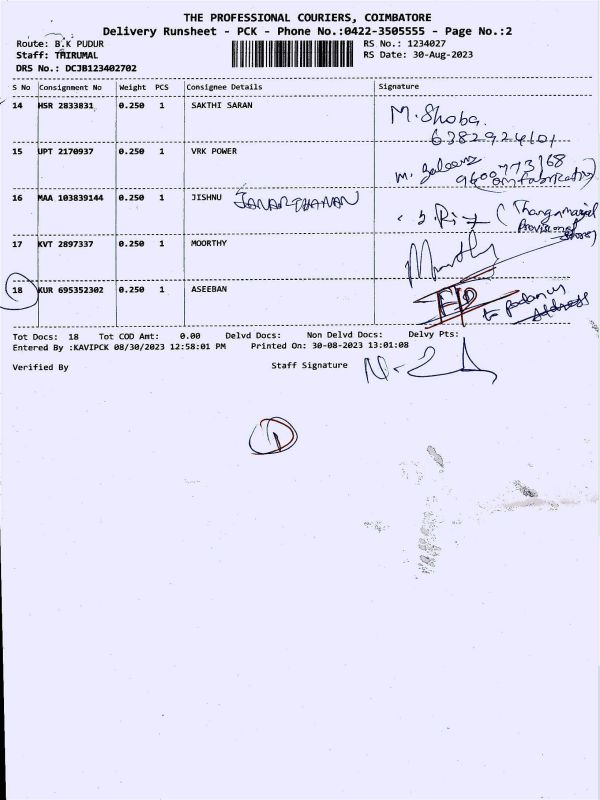 THE PROFESSIONAL COURIERS, COIMBATORE
Delivery Runsheet - PCK - Phone No.:0422-3505555 - Page No.:2
Route: B.K PUDUR
RS No.: 1234027
Staff: THIRUMAL
RS Date: 30-Aug-2023
DRS No.: DCJB123402702
S No Consignment No Weight PCS Consignee Details Signature
14 HSR 2833831 0.250 1 SAKTHI SARAN M. Shoba.
6382924101
15 UPT 2170937 0.250 1 VRK POWER
9600773168
16 MAA 103839144 0.250 1 JISHNU JANARTHANAN
17 KVT 2897337 0.250 1 MOORTHY Moorthy
18 KUR 695352302 0.250 1 ASEEBAN
Address
Tot Docs: 18 Tot COD Amt: 0.00 Delvd Docs: Non Delvd Docs: Delvy Pts:
Entered By :KAVIPCK 08/30/2023 12:58:01 PM Printed On: 30-08-2023 13:01:08
Verified By Staff Signature